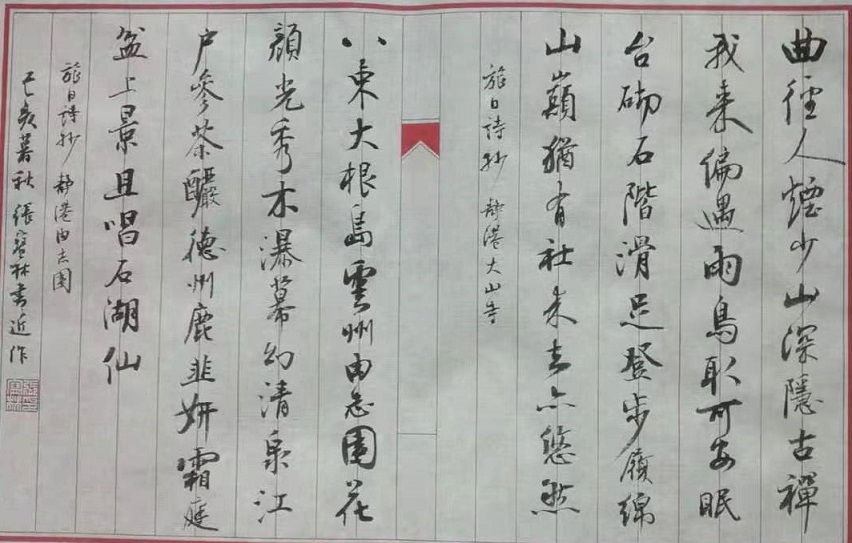 曲徑人煙少山深隱古禪
我來偏遇雨鳥耴可安眠
台砌石階滑足登步履綿
山巔猶有社朱玄亦悠然
旅日詩抄 静港大山寺
八東大根島雲州由志園花
顔光秀木瀑幕幻清泉江
户參茶釅德州鹿韭妍霜庭
盆上景且唱石湖仙
旅日詩抄 静港由志園
己亥暮秋張寶林書近作